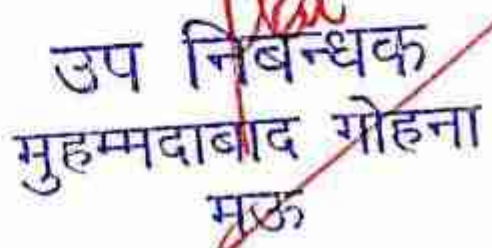 उप निबन्धक
मुहम्मदाबाद गोहना
मऊ